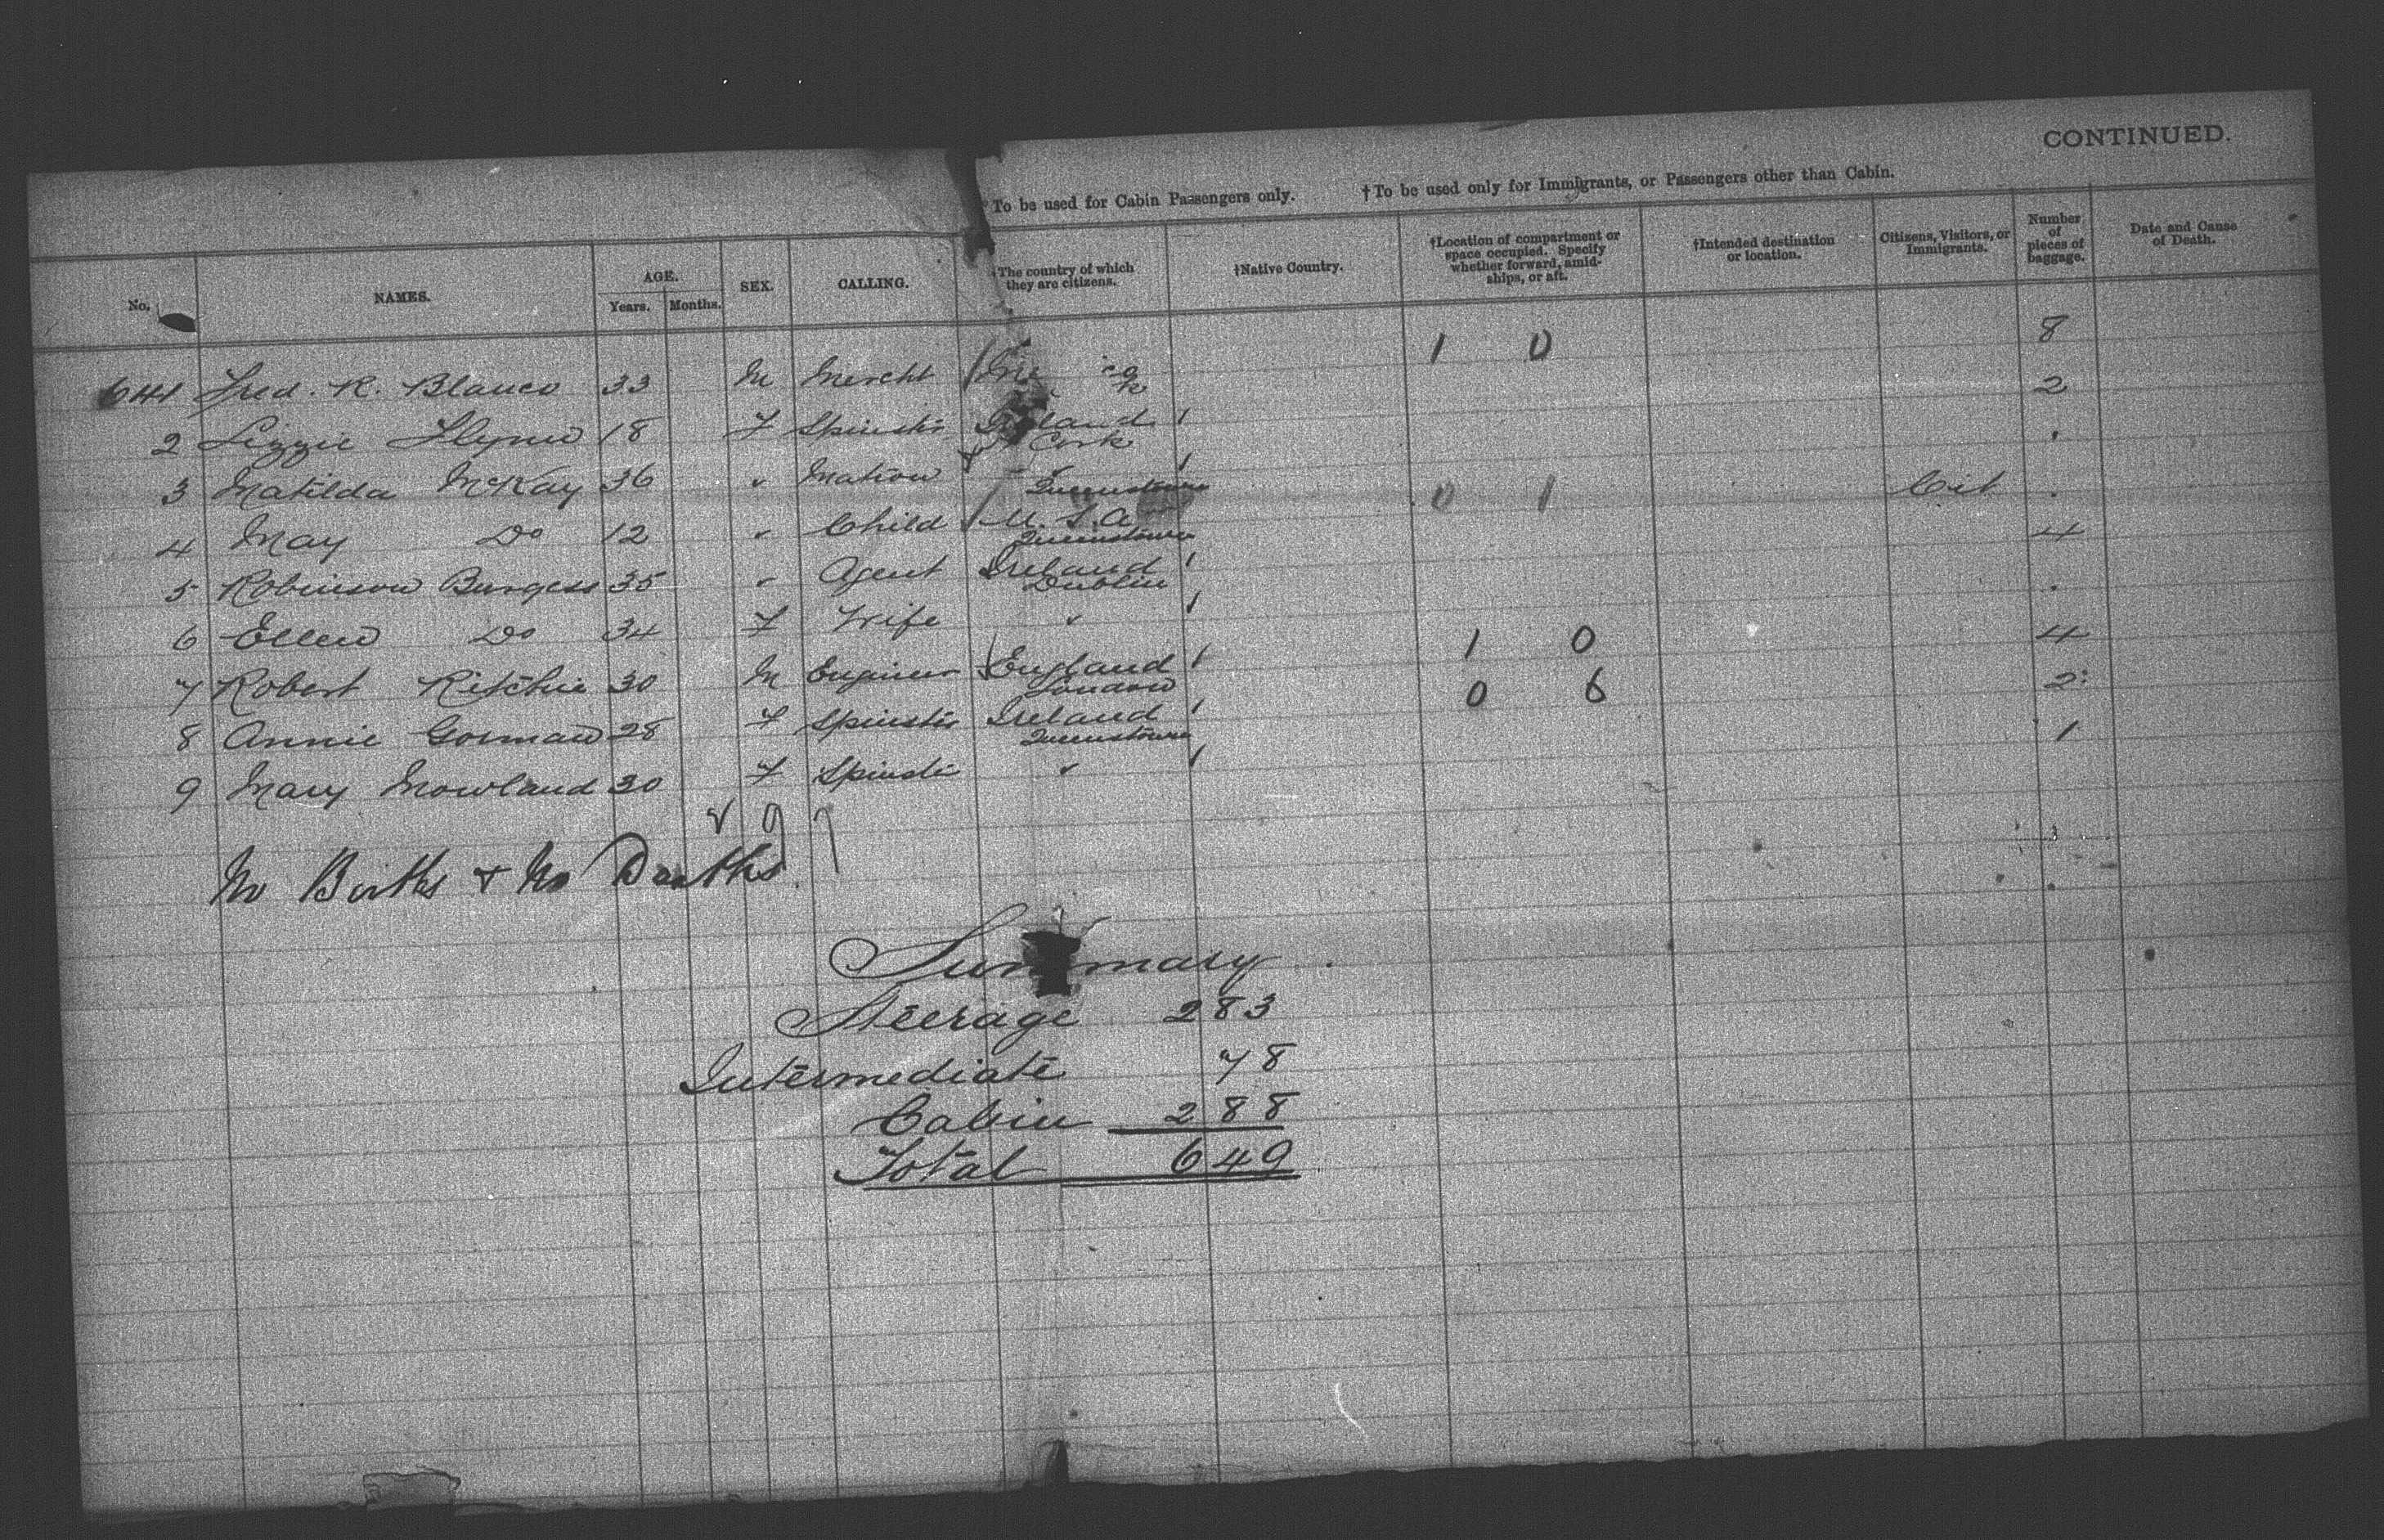 CONTINUED.
*To be used for Cabin Passengers only. †To be used only for Immigrants, or Passengers other than Cabin.
No. NAMES. AGE. Years. Months. SEX. CALLING. †The country of which they are citizens. †Native Country. †Location of compartment or space occupied. Specify whether forward, amidships, or aft. †Intended destination or location. Citizens, Visitors, or Immigrants. Number of pieces of baggage. Date and Cause of Death.
641 Fred. R. Blanco 33 M Mercht 1 0 8
2 Lizzie Flynn 18 F Spinster Ireland Cork 2
3 Matilda McKay 36 " Matron " Queenstown
4 May Do 12 " Child U.S.A Queenstown 0 1 Cit
5 Robinson Burgess 35 " Agent Ireland Dublin 4
6 Ellen Do 34 F Wife "
7 Robert Ritchie 30 M Engineer England London 1 0 4
8 Annie Gorman 28 F Spinster Ireland Queenstown 0 6 2
9 Mary Mowland 30 F Spinster " 1
No Births & No Deaths
Summary
Steerage 283
Intermediate 78
Cabin 288
Total 649